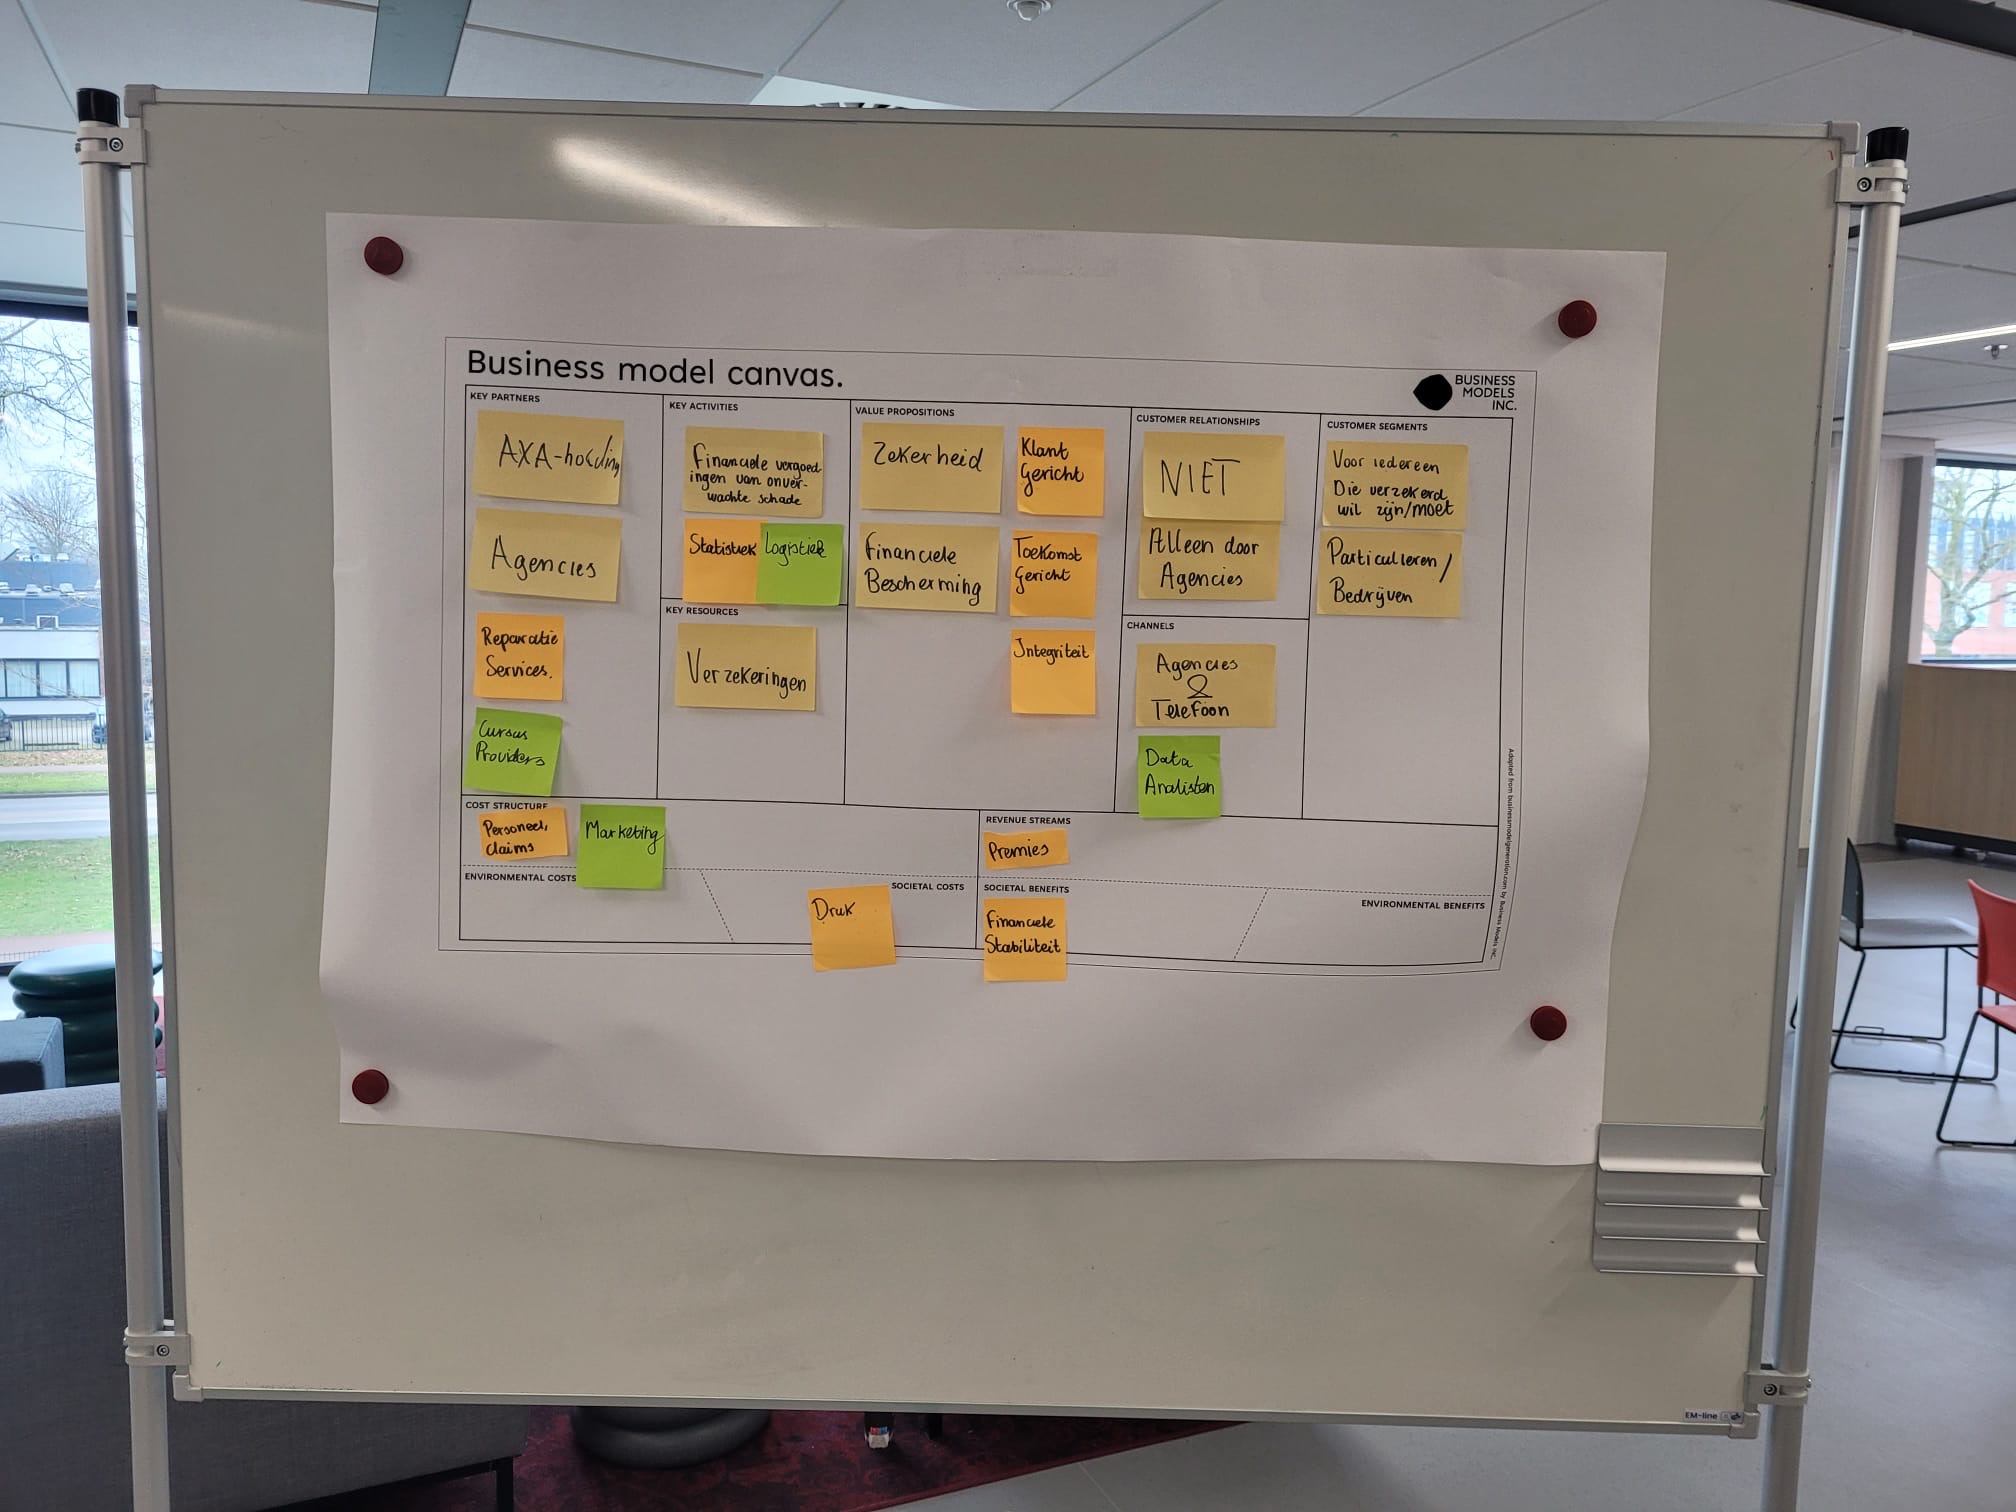 Business model canvas.
BUSINESS
MODELS
INC.
KEY PARTNERS
AXA-holding
Agencies
Reparatie
Services.
Cursus
Providers
KEY ACTIVITIES
Financiele vergoed-
ingen van onver-
wachte schade
Statistiek
Logistiek
KEY RESOURCES
Verzekeringen
VALUE PROPOSITIONS
Zekerheid
Klant
Gericht
Financiele
Bescherming
Toekomst
Gericht
Integriteit
CUSTOMER RELATIONSHIPS
NIET
Alleen door
Agencies
CHANNELS
Agencies
&
Telefoon
Data
Analisten
CUSTOMER SEGMENTS
Voor iedereen
Die verzekerd
wil zijn/moet
Particulieren /
Bedrijven
COST STRUCTURE
Personeel,
claims
Marketing
REVENUE STREAMS
Premies
ENVIRONMENTAL COSTS
SOCIETAL COSTS
Druk
SOCIETAL BENEFITS
Financiele
Stabiliteit
ENVIRONMENTAL BENEFITS
Adapted from businessmodelgeneration.com by Business Models INC.
EM-line